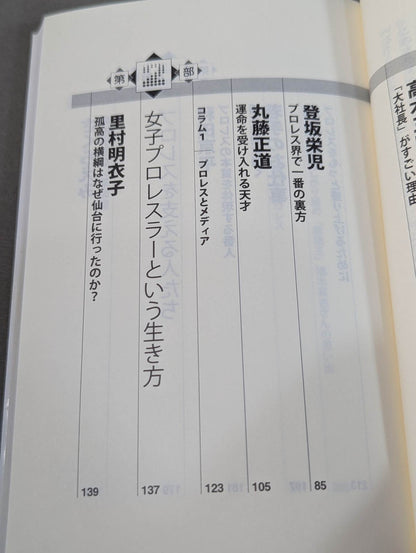 「大社長」がすごい理由
登坂栄児
プロレス界で一番の裏方
85
丸藤正道
運命を受け入れる天才
105
コラム1――プロレスとメディア
123
第
部
女子プロレスラーという生き方
137
里村明衣子
孤高の横綱はなぜ仙台に行ったのか?
139